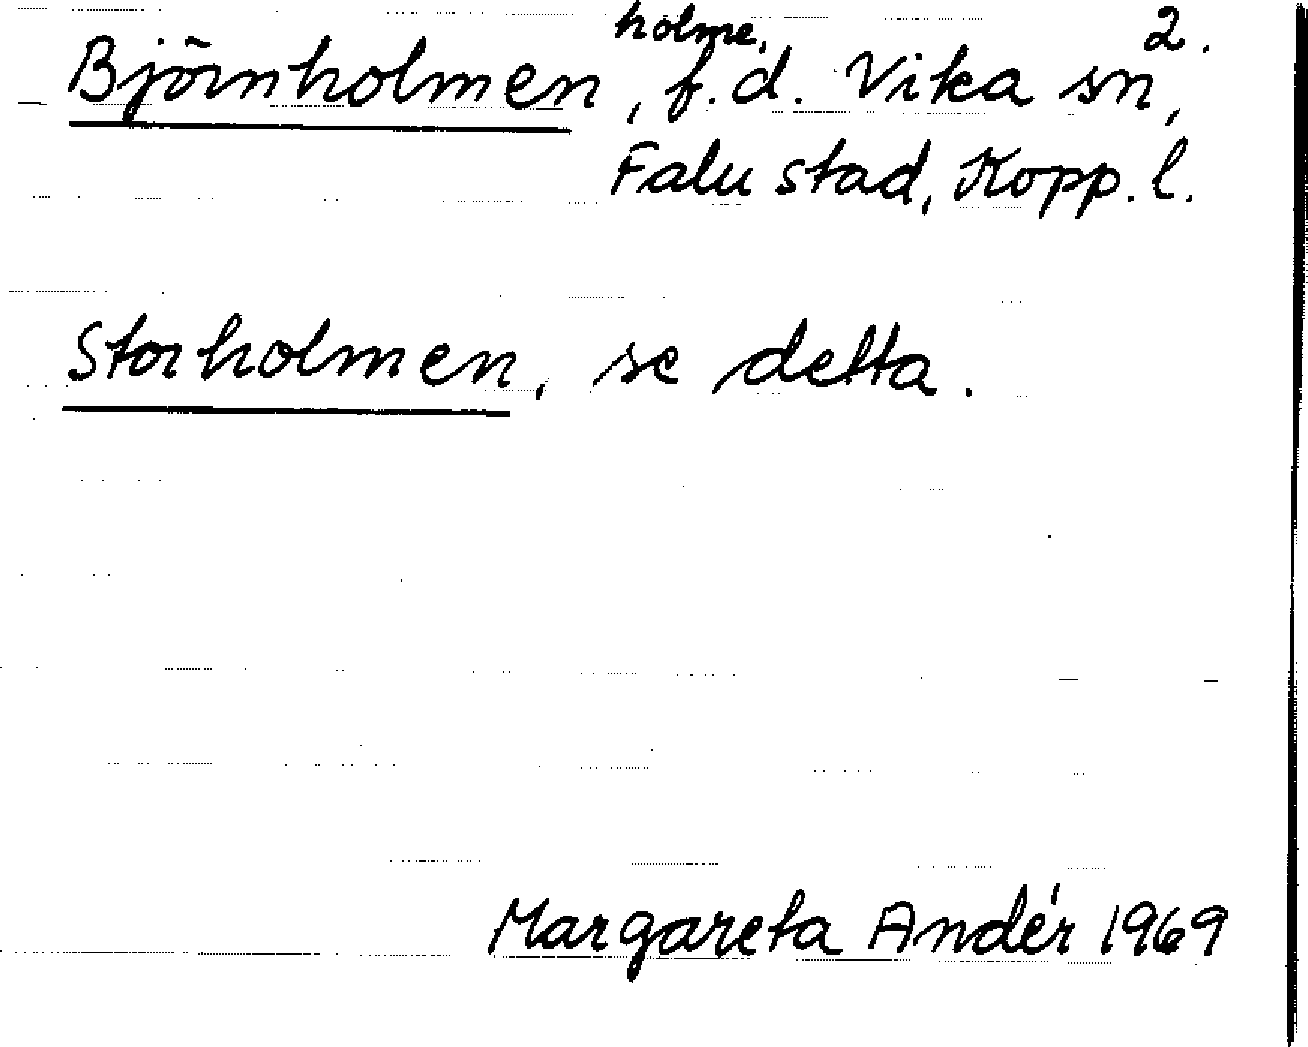 holme, 2.
Björnholmen, f.d. Vika sn,
Falu stad, Kopp. l.
Storholmen, se detta.
Margareta Andér 1969